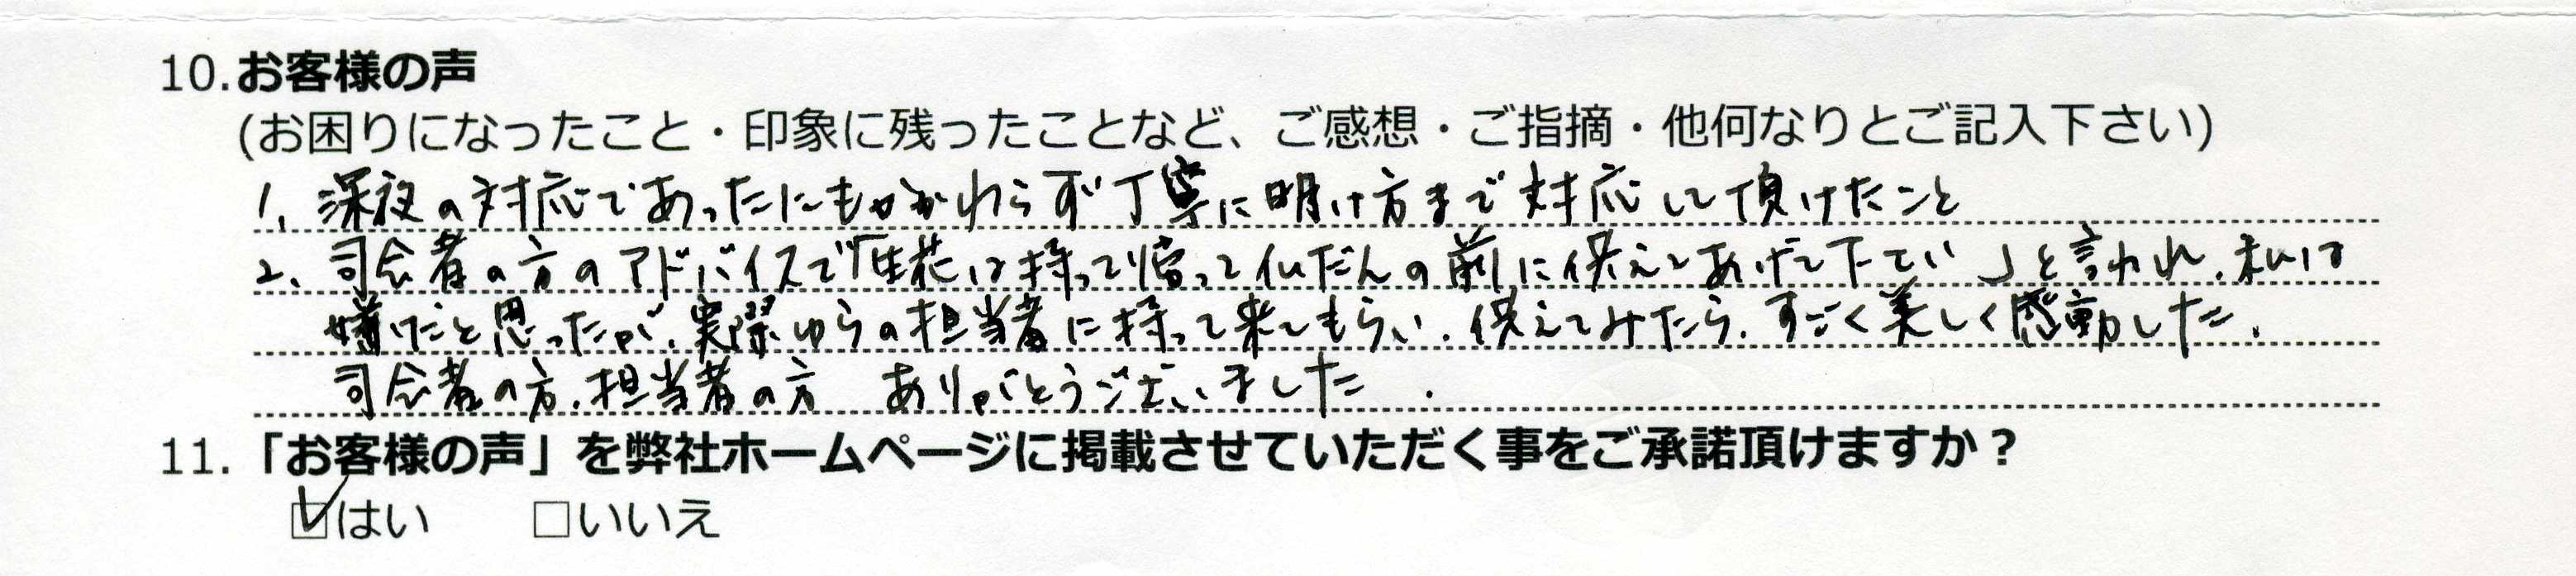 10.お客様の声
(お困りになったこと・印象に残ったことなど、ご感想・ご指摘・他何なりとご記入下さい)
1、深夜の対応であったにもかかわらず丁寧に明け方まで対応して頂けたこと
2、司会者の方のアドバイスで「生花は持って帰って仏だんの前に供えてあげて下さい」と言われ、私は
だと思ったが、実際ゆらの担当者に持って来てもらい、供えてみたら、すごく美しく感動した。
司会者の方、担当者の方 ありがとうございました.
11.「お客様の声」を弊社ホームページに掲載させていただく事をご承諾頂けますか？
☑はい □いいえ